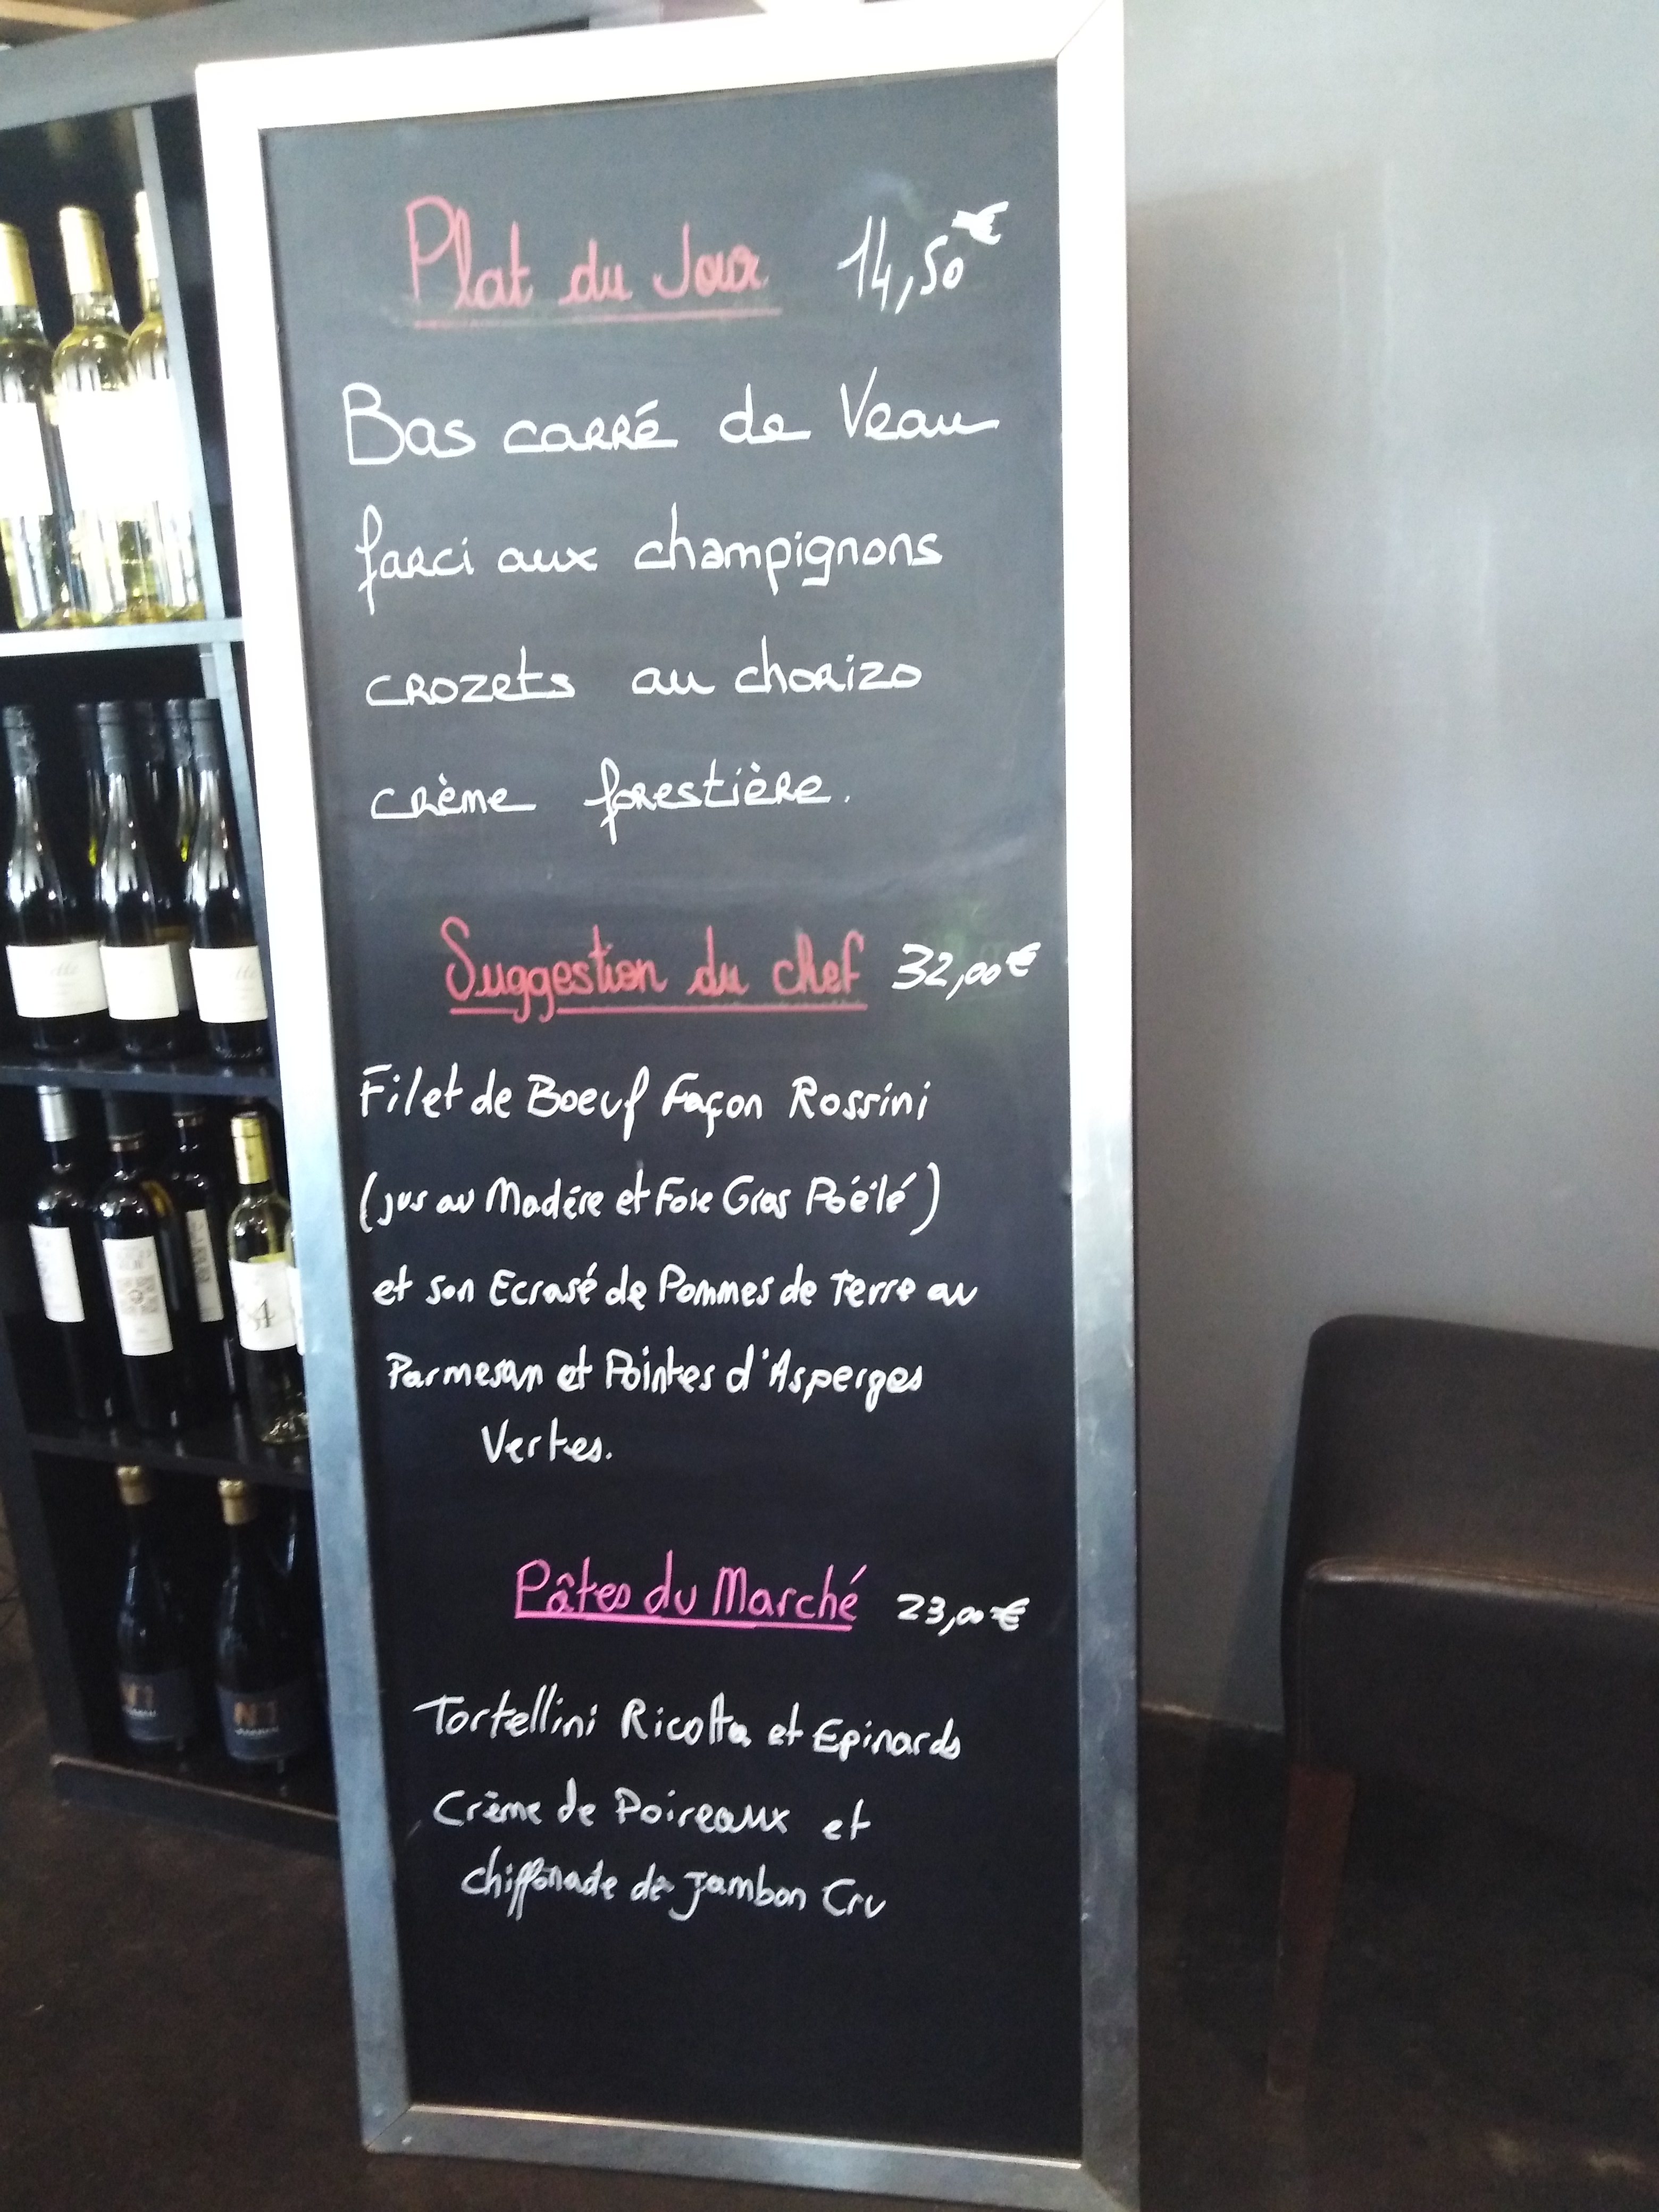 Plat du Jour 14,50€
Bas carré de Veau
farci aux champignons
crozets au chorizo
crème forestière.
Suggestion du chef 32,00€
Filet de Boeuf Façon Rossini
(jus au Madère et Foie Gras Poélé)
et son Ecrasé de Pommes de Terre au
Parmesan et Pointes d'Asperges
Vertes.
Pâtes du Marché 23,00€
Tortellini Ricotta et Epinards
Crème de Poireaux et
chiffonade de Jambon Cru
N°1
N°1